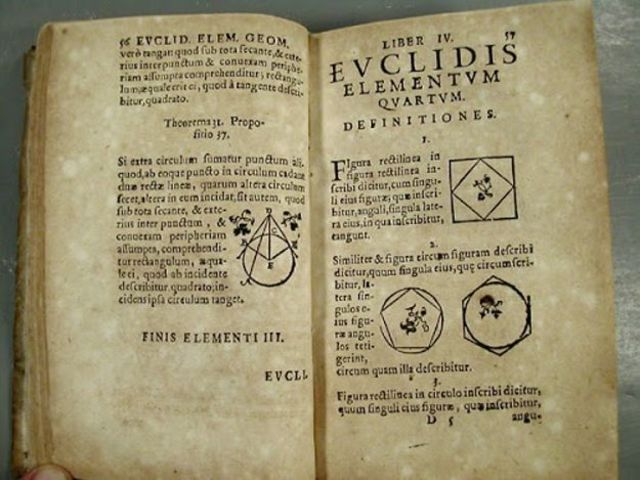 56 EVCLID. ELEM. GEOM.
verò tangat: quod sub tota secante, & exte-
rius inter punctum & conuexam periphe-
riam assumpta comprehenditur, rectangu-
lum, æquale erit ei, quod à tangente descri-
bitur, quadrato.
Theorema 31. Propo-
sitio 37.
Si extra circulum sumatur punctum ali-
quod, ab eoque puncto in circulum cadant
duæ rectæ lineæ, quarum altera circulum
secet, altera in eum incidat, sit autem, quod
sub tota secante, & exte-
rius inter punctum, &
conuexam peripheriam
assumpta, comprehendi-
tur rectangulum, æqua-
le ei, quod ab incidente
describitur, quadrato; in-
cidens ipsa circulum tanget.
D
C
B
E
FINIS ELEMENTI III.
EVCLI.
LIBER IV. 57
EVCLIDIS
ELEMENTVM
QVARTVM.
DEFINITIONES.
1.
FIgura rectilinea in
figura rectilinea in-
scribi dicitur, cum singu-
li eius figuræ, quæ inscri-
bitur, anguli, singula late-
ra eius, in qua inscribitur,
tangunt.
2.
Similiter & figura circum figuram describi
dicitur, quum singula eius, quę circumscri-
bitur, la-
tera sin-
gulos e-
ius figu-
ræ angu-
los teti-
gerint,
circum quam illa describitur.
3.
Figura rectilinea in circulo inscribi dicitur,
quum singuli eius figuræ, quæ inscribitur,
D 5 angu-